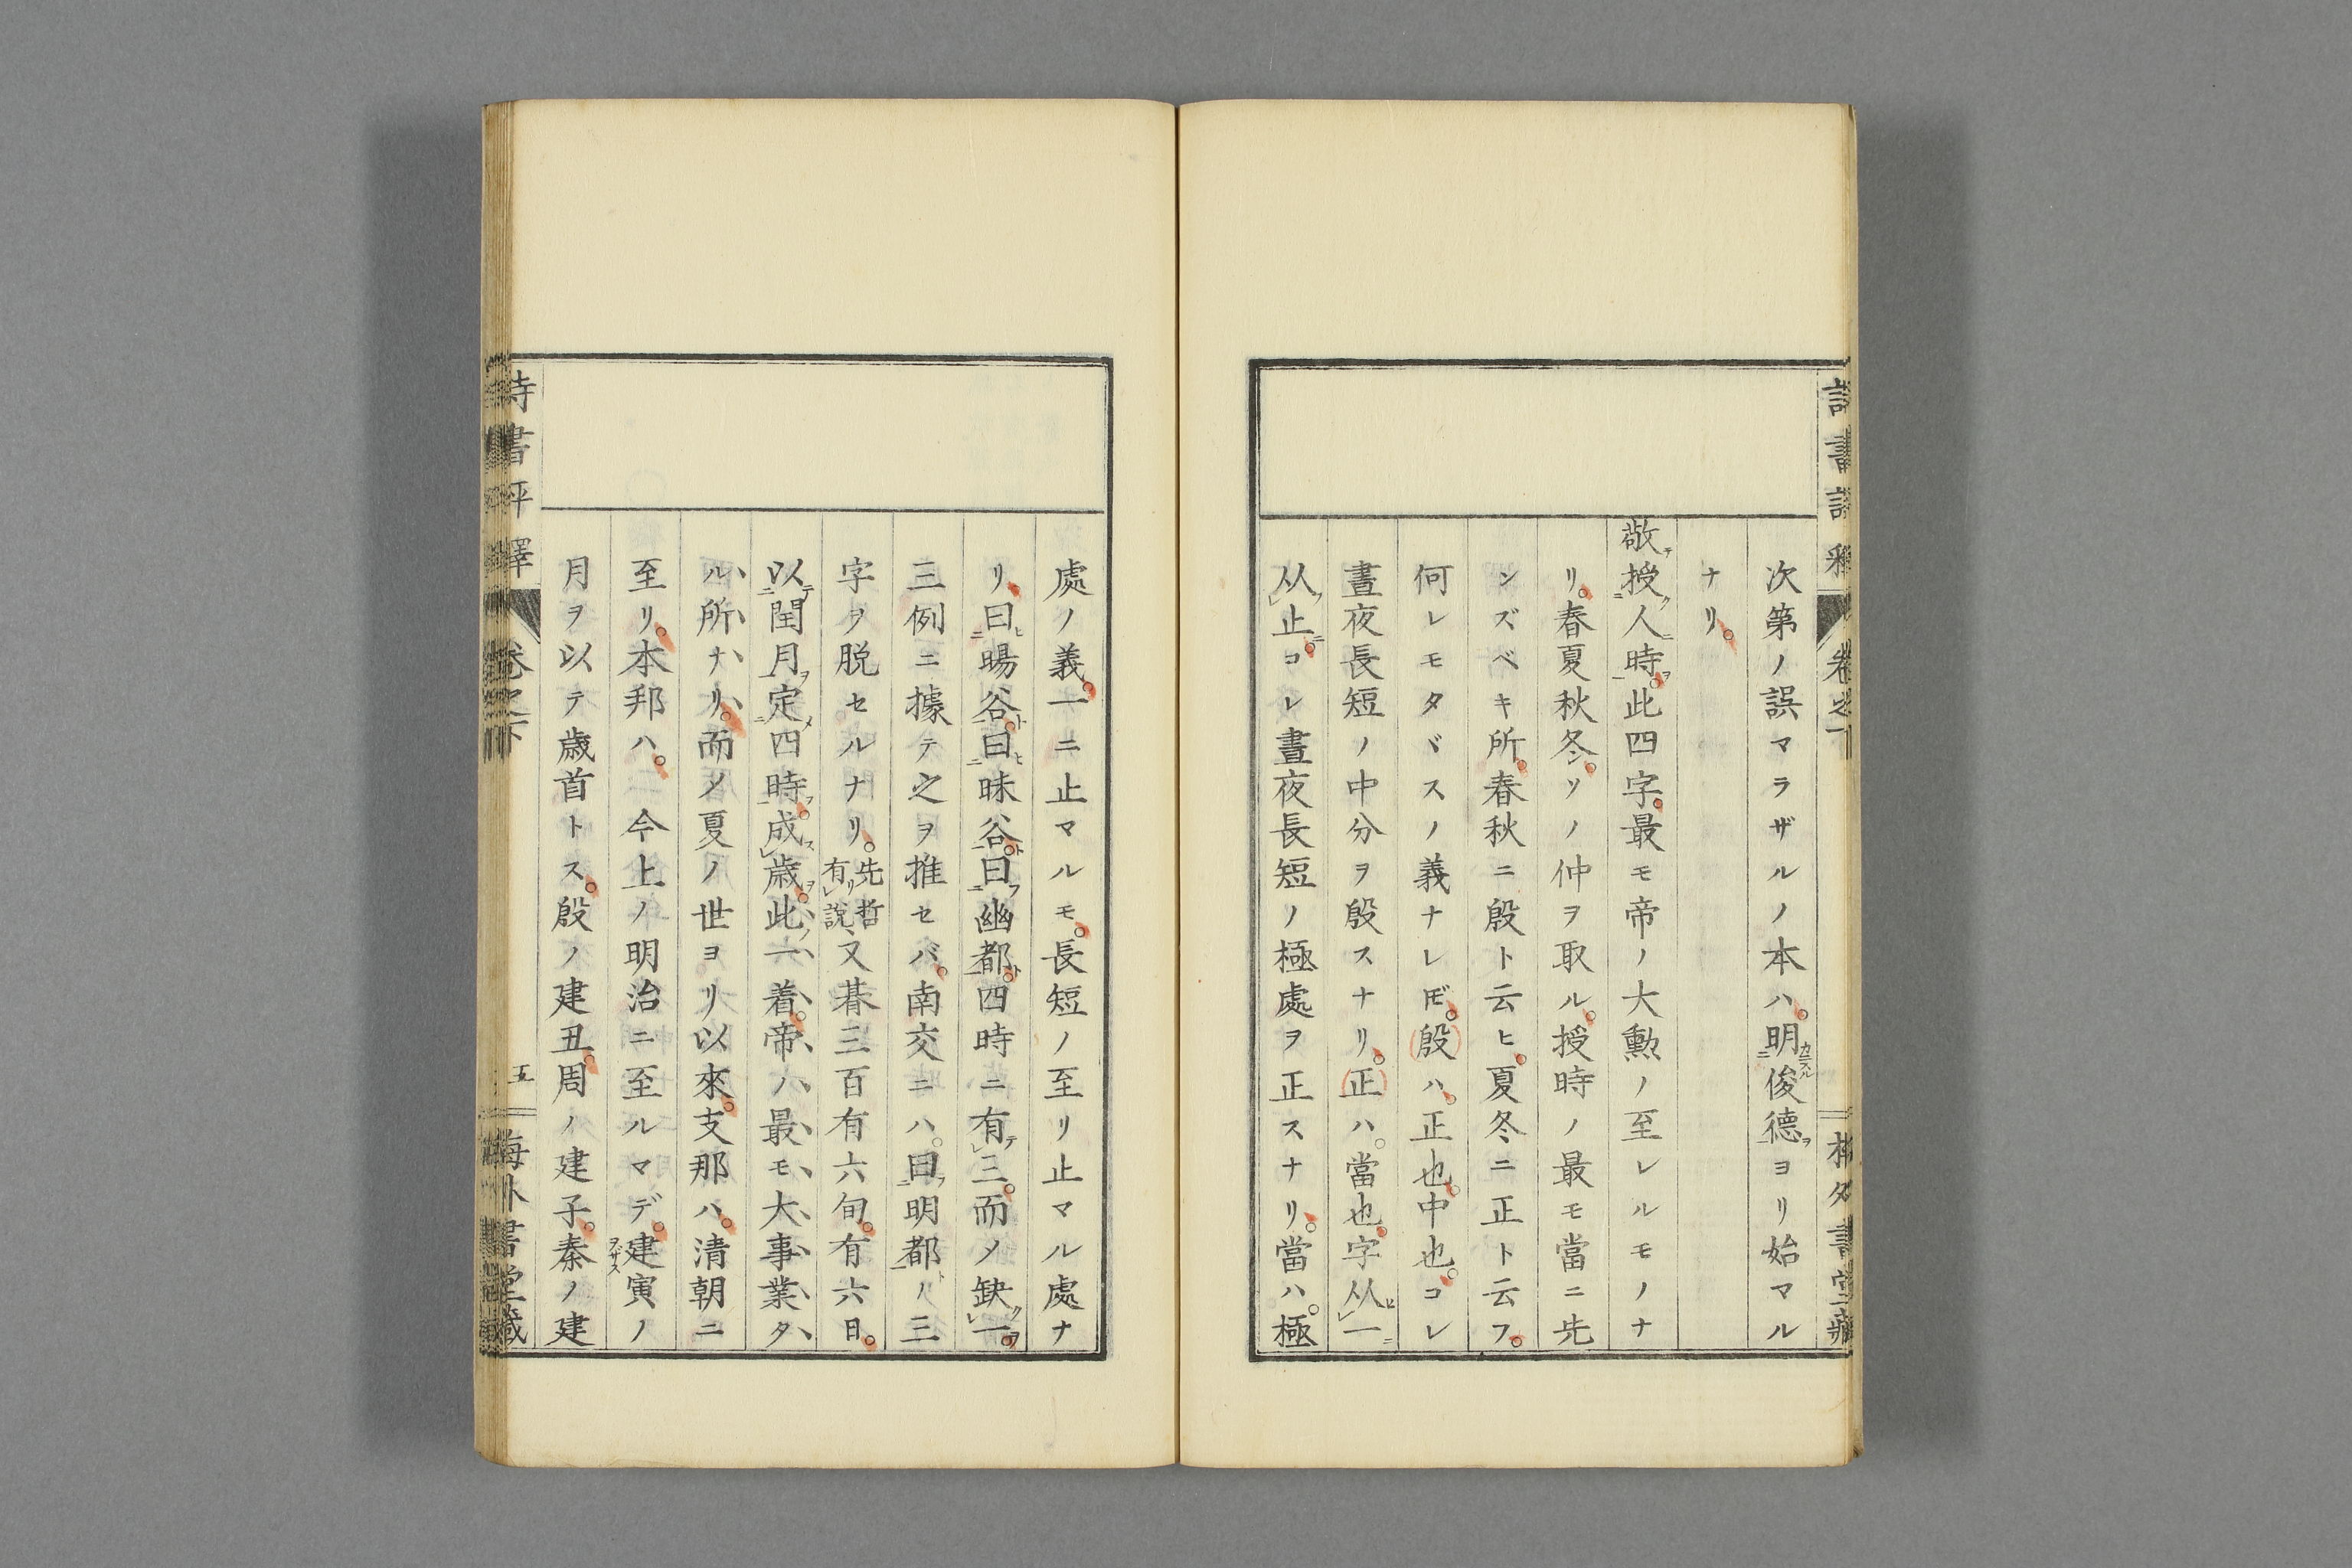 次第ノ誤マラザルノ本ハ。明ニカニスル俊德ヲヨリ始マル
ナリ。
敬テ授ク人ニ時ヲ。此四字。最モ帝ノ大勲ノ至レルモノナ
リ。春夏秋冬。ソノ仲ヲ取ル。授時ノ最モ當ニ先
ンズベキ所。春秋ニ殷ト云ヒ。夏冬ニ正ト云フ。
何レモタヾスノ義ナレ𪜈。殷ハ。正也。中也。コレ
晝夜長短ノ中分ヲ殷スナリ。正ハ。當也。字从ヒ一ニ
从フ止ニ。コレ晝夜長短ノ極處ヲ正スナリ。當ハ。極
處ノ義。一ニ止マルモ。長短ノ至リ止マル處ナ
リ。曰ヒ暘谷ト。曰ヒ昧谷ト。曰フ幽都ト。四時ニ有テ三。而ノ缺ク一ヲ。
三例ニ據テ之ヲ推セバ。南交ニハ。曰フ明都トノ三
字ヲ脱セルナリ。先哲有リ說、又朞三百有六旬。有六日。
以テ閏月ヲ定メ四時ヲ。成ス歳ヲ。此ノ一着。帝ノ最モ大事業タ
ル所ナリ。而ノ夏ノ世ヨリ以來。支那ハ。清朝ニ
至リ。本邦ハ。今上ノ明治ニ至ルマデ。建ヲザス寅ノ
月ヲ以テ歳首トス。殷ノ建丑。周ノ建子。秦ノ建
卷之下
五